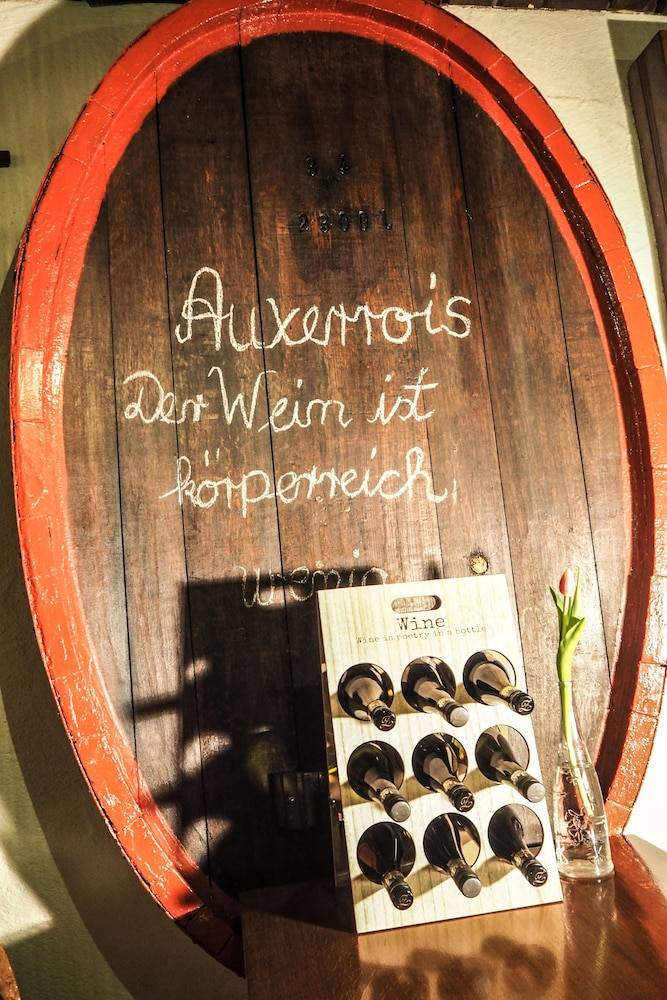 29001
Auxerrois
Der Wein ist
körperreich,
Wine
Wine is poetry in a bottle